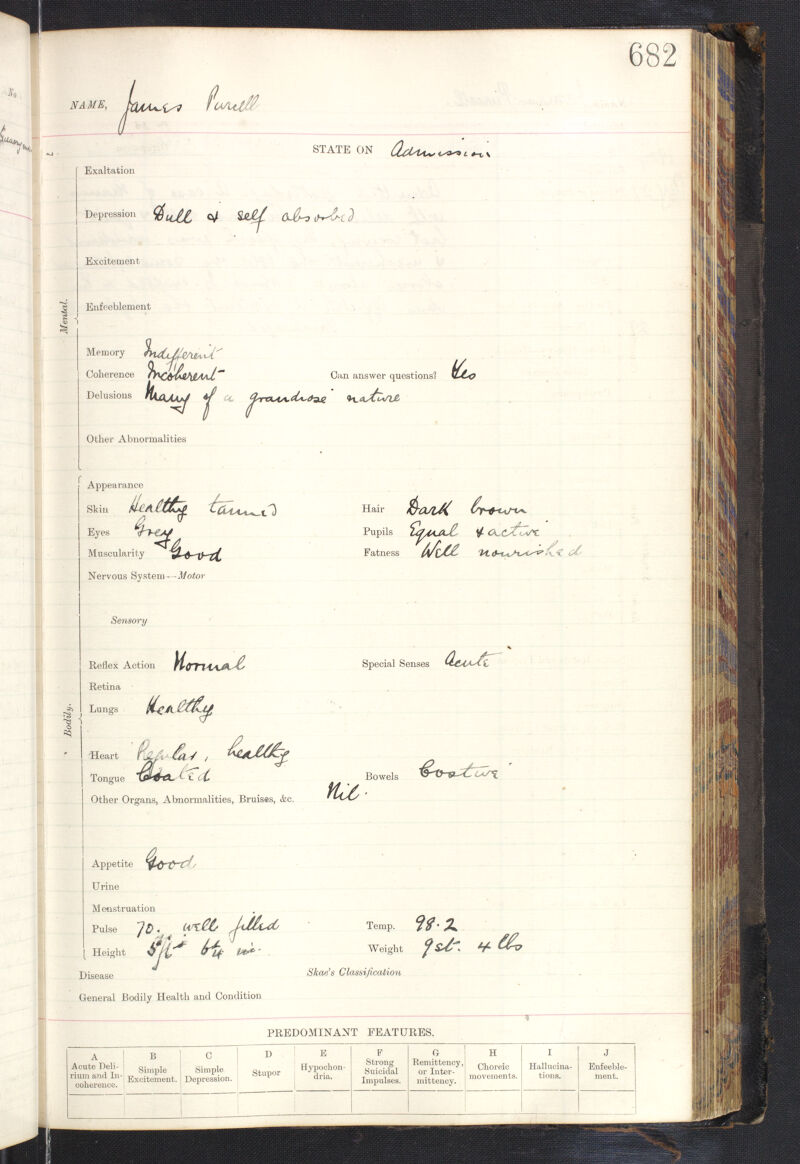 682
NAME, James Purcell
STATE ON Admission
Mental.
Exaltation
Depression Dull & self absorbed
Excitement
Enfeeblement
Memory Indifferent
Coherence Incoherent Can answer questions? Yes
Delusions Many of a grandiose nature
Other Abnormalities
Bodily.
Appearance
Skin Healthy tanned Hair Dark brown
Eyes Grey Pupils Equal & active
Muscularity Good Fatness Well nourished
Nervous System—Motor
Sensory
Reflex Action Normal Special Senses Acute
Retina
Lungs Healthy
Heart Regular, healthy
Tongue Coated Bowels Costive
Other Organs, Abnormalities, Bruises, &c. Nil.
Appetite Good
Urine
Menstruation
Pulse 70. well filled Temp. 98.2
Height 5ft in. Weight 9st. 4 lbs
Disease Skae's Classification
General Bodily Health and Condition
PREDOMINANT FEATURES.
A B C D E F G H I J
Acute Delirium and Incoherence. Simple Excitement. Simple Depression. Stupor Hypochondria. Strong Suicidal Impulses. Remittency, or Intermittency. Choreic movements. Hallucinations. Enfeeblement.